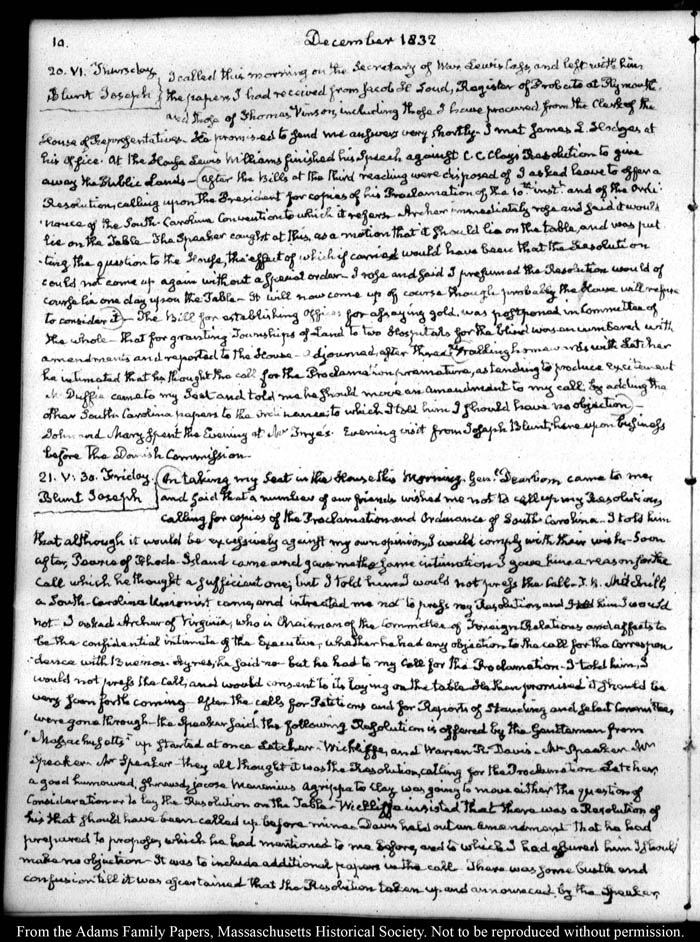 10.
December 1832
20. VI. Thursday. I called this morning on the Secretary of War Lewis Cass, and left with him
Blunt Joseph the papers I had received from Jacob H Loud, Register of Probate at Plymouth
and those of Thomas Vinson, including those I have procured from the Clerk of the
House of Representatives. He promised to send me answers very shortly. I met James L. Hodges at
his Office. At the House Lewis Williams finished his Speech against C. C. Clay's Resolution to give
away the Public Lands. After the Bills at the third reading were disposed of I asked leave to offer a
Resolution, calling upon the President for copies of his Proclamation of the 10th inst. and of the Ordi-
nance of the South-Carolina Convention to which it refers. Archer immediately rose and said it would
lie on the Table. The Speaker caught at this, as a motion that it should lie on the table, and was put
ting the question to the House, the effect of which if carried would have been that the Resolution
could not come up again without a special order. I rose and said I presumed the Resolution would of
course lie one day upon the Table. It will now come up of course though probably the House will refuse
to consider it. The Bill for establishing Offices for assaying gold, was postponed in Committee of
the whole that for granting Townships of Land to two Hospitals for the blind was encumbered with
amendments and reported to the House. Adjourned, after three. Walking home with Letcher
he intimated that he thought the call for the Proclamation premature, as tending to produce excitement
Mc Duffie came to my Seat and told me he should move an amendment to my call, by adding the
other South Carolina papers to the Ordinance; to which I told him I should have no objection
John and Mary spent the Evening at Mr Frye's. Evening visit from Joseph Blunt, here upon business
before the Danish Commission.
21. V: 30. Friday. On taking my Seat in the House this Morning, Genl. Dearborn came to me
Blunt Joseph and said that a number of our friends wished me not to call up my Resolution,
calling for copies of the Proclamation and Ordinance of South Carolina. I told him
that although it would be excessively against my own opinion, I would comply with their wish. Soon
after, Pearce of Rhode-Island came and gave me the same intimation. I gave him a reason for the
Call which he thought a sufficient one; but I told him I would not press the Call. T. R. Mitchell,
a South-Carolina Unionist came, and intreated me not to press my Resolution, and I told him I would
not. I asked Archer of Virginia, who is Chairman of the Committee of Foreign Relations and affects to
be the confidential intimate of the Executive, whether he had any objection to the call for the Correspon-
dence with Buenos-Ayres, he said no but he had to my Call for the Proclamation. I told him, I
would not press the Call, and would consent to its laying on the table. He then promised it should be
very soon forth coming. After the calls for Petitions and for Reports of Standing and Select Committees,
were gone through the Speaker said "the following Resolution is offered by the Gentleman from
"Massachusetts" up started at once Letcher, Wickliffe, and Warren R. Davis. Mr Speaker Mr
Speaker Mr Speaker they all thought it was the Resolution, calling for the Proclamation. Letcher,
a good humoured, shrewd, jocose Menenius Agrippa to Clay was going to move either the question of
Consideration or to lay the Resolution on the Table. Wickliffe insisted that there was a Resolution of
his that should have been called up before mine. Davis held out an amendment that he had
prepared to propose, which he had mentioned to me before, and to which I had assured him I should
make no objection. It was to include additional papers in the call. There was some bustle and
confusion till it was ascertained that the Resolution taken up and announced by the Speaker,
From the Adams Family Papers, Massachusetts Historical Society. Not to be reproduced without permission.